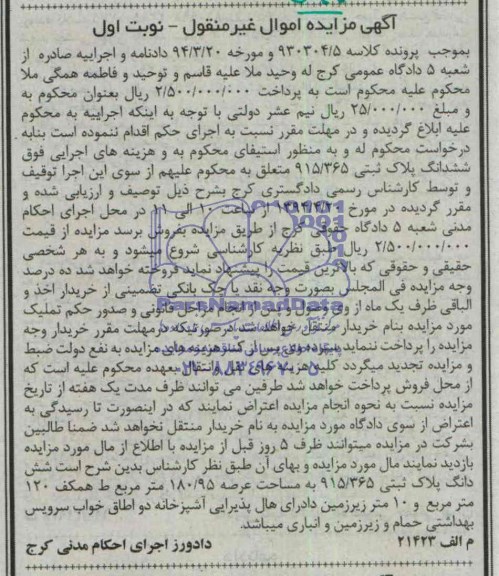 آگهی مزایده اموال غیرمنقول - نوبت اول
بموجب پرونده کلاسه ۹۳۰۳۰۴/۵ و مورخه ۹۴/۳/۲۰ دادنامه و اجراییه صادره از
شعبه ۵ دادگاه عمومی کرج له وحید ملا علیه قاسم و توحید و فاطمه همگی ملا
محکوم علیه محکوم است به پرداخت ۲/۵۰۰/۰۰۰/۰۰۰ ریال بعنوان محکوم به
و مبلغ ۲۵/۰۰۰/۰۰۰ ریال نیم عشر دولتی با توجه به اینکه اجراییه به محکوم
علیه ابلاغ گردیده و در مهلت مقرر نسبت به اجرای حکم اقدام ننموده است بنابه
درخواست محکوم له و به منظور استیفای محکوم به و هزینه های اجرایی فوق
ششدانگ پلاک ثبتی ۹۱۵/۳۶۵ متعلق به محکوم علیهم از سوی این اجرا توقیف
و توسط کارشناس رسمی دادگستری کرج بشرح ذیل توصیف و ارزیابی شده و
مقرر گردیده در مورخ از ساعت ۱۰ الی ۱۱ در محل اجرای احکام
مدنی شعبه ۵ دادگاه حقوقی کرج از طریق مزایده بفروش برسد مزایده از قیمت
۲/۵۰۰/۰۰۰/۰۰۰ ریال طبق نظریه کارشناسی شروع میشود و به هر شخصی
حقیقی و حقوقی که بالاترین قیمت را پیشنهاد نماید فروخته خواهد شد ده درصد
وجه مزایده فی المجلس بصورت وجه نقد یا چک بانکی تضمینی از خریدار اخذ و
الباقی ظرف یک ماه از وی وصول و پس از انجام مراحل قانونی و صدور حکم تملیک
مورد مزایده بنام خریدار منتقل خواهد شد درصورتیکه درمهلت مقرر خریدار وجه
مزایده را پرداخت ننماید سپرده وی پس از کسر هزینه های مزایده به نفع دولت ضبط
و مزایده تجدید میگردد کلیه هزینه نقل و انتقال بعهده محکوم علیه است که
از محل فروش پرداخت خواهد شد طرفین می توانند ظرف مدت یک هفته از تاریخ
مزایده نسبت به نحوه انجام مزایده اعتراض نمایند که در اینصورت تا رسیدگی به
اعتراض از سوی دادگاه مورد مزایده به نام خریدار منتقل نخواهد شد ضمنا طالبین
بشرکت در مزایده میتوانند ظرف ۵ روز قبل از مزایده با اطلاع از مال مورد مزایده
بازدید نمایند مال مورد مزایده و بهای آن طبق نظر کارشناس بدین شرح است شش
دانگ پلاک ثبتی ۹۱۵/۳۶۵ به مساحت عرصه ۱۸۰/۹۵ متر مربع ط همکف ۱۲۰
متر مربع و ۱۰ متر زیرزمین دادرای هال پذیرایی آشپزخانه دو اطاق خواب سرویس
بهداشتی حمام و زیرزمین و انباری میباشد.
م الف ۲۱۴۲۳ دادورز اجرای احکام مدنی کرج
ParsNamadData